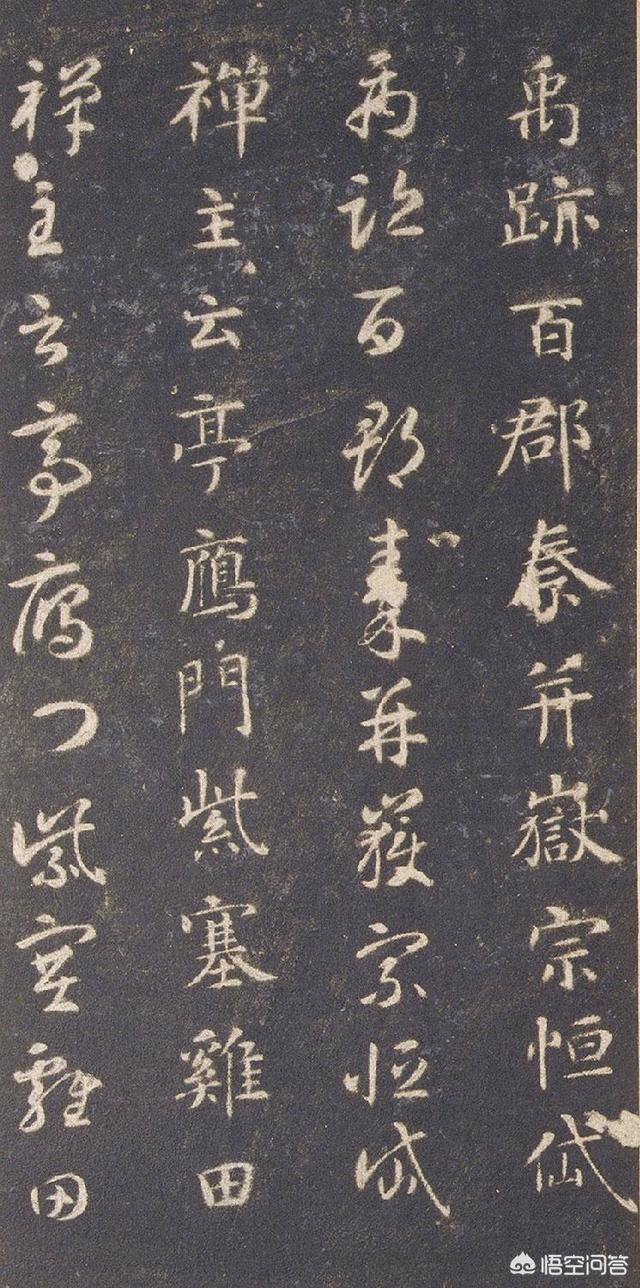 禹跡百郡秦并嶽宗恒岱
禹跡百郡秦并嶽宗恒岱
禪主云亭鴈門紫塞雞田
禪主云亭鴈門紫塞雞田
悟空问答